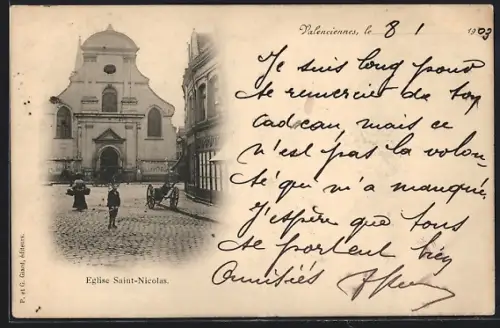 Valenciennes, le 8 1 1903
Je suis long pour
te remercier de ton
cadeau, mais ce
n'est pas la volon-
té qui m'a manqué.
J'espère que tous
se portent bien
Amitiés
Eglise Saint-Nicolas.
P. et G. Giard, éditeurs.